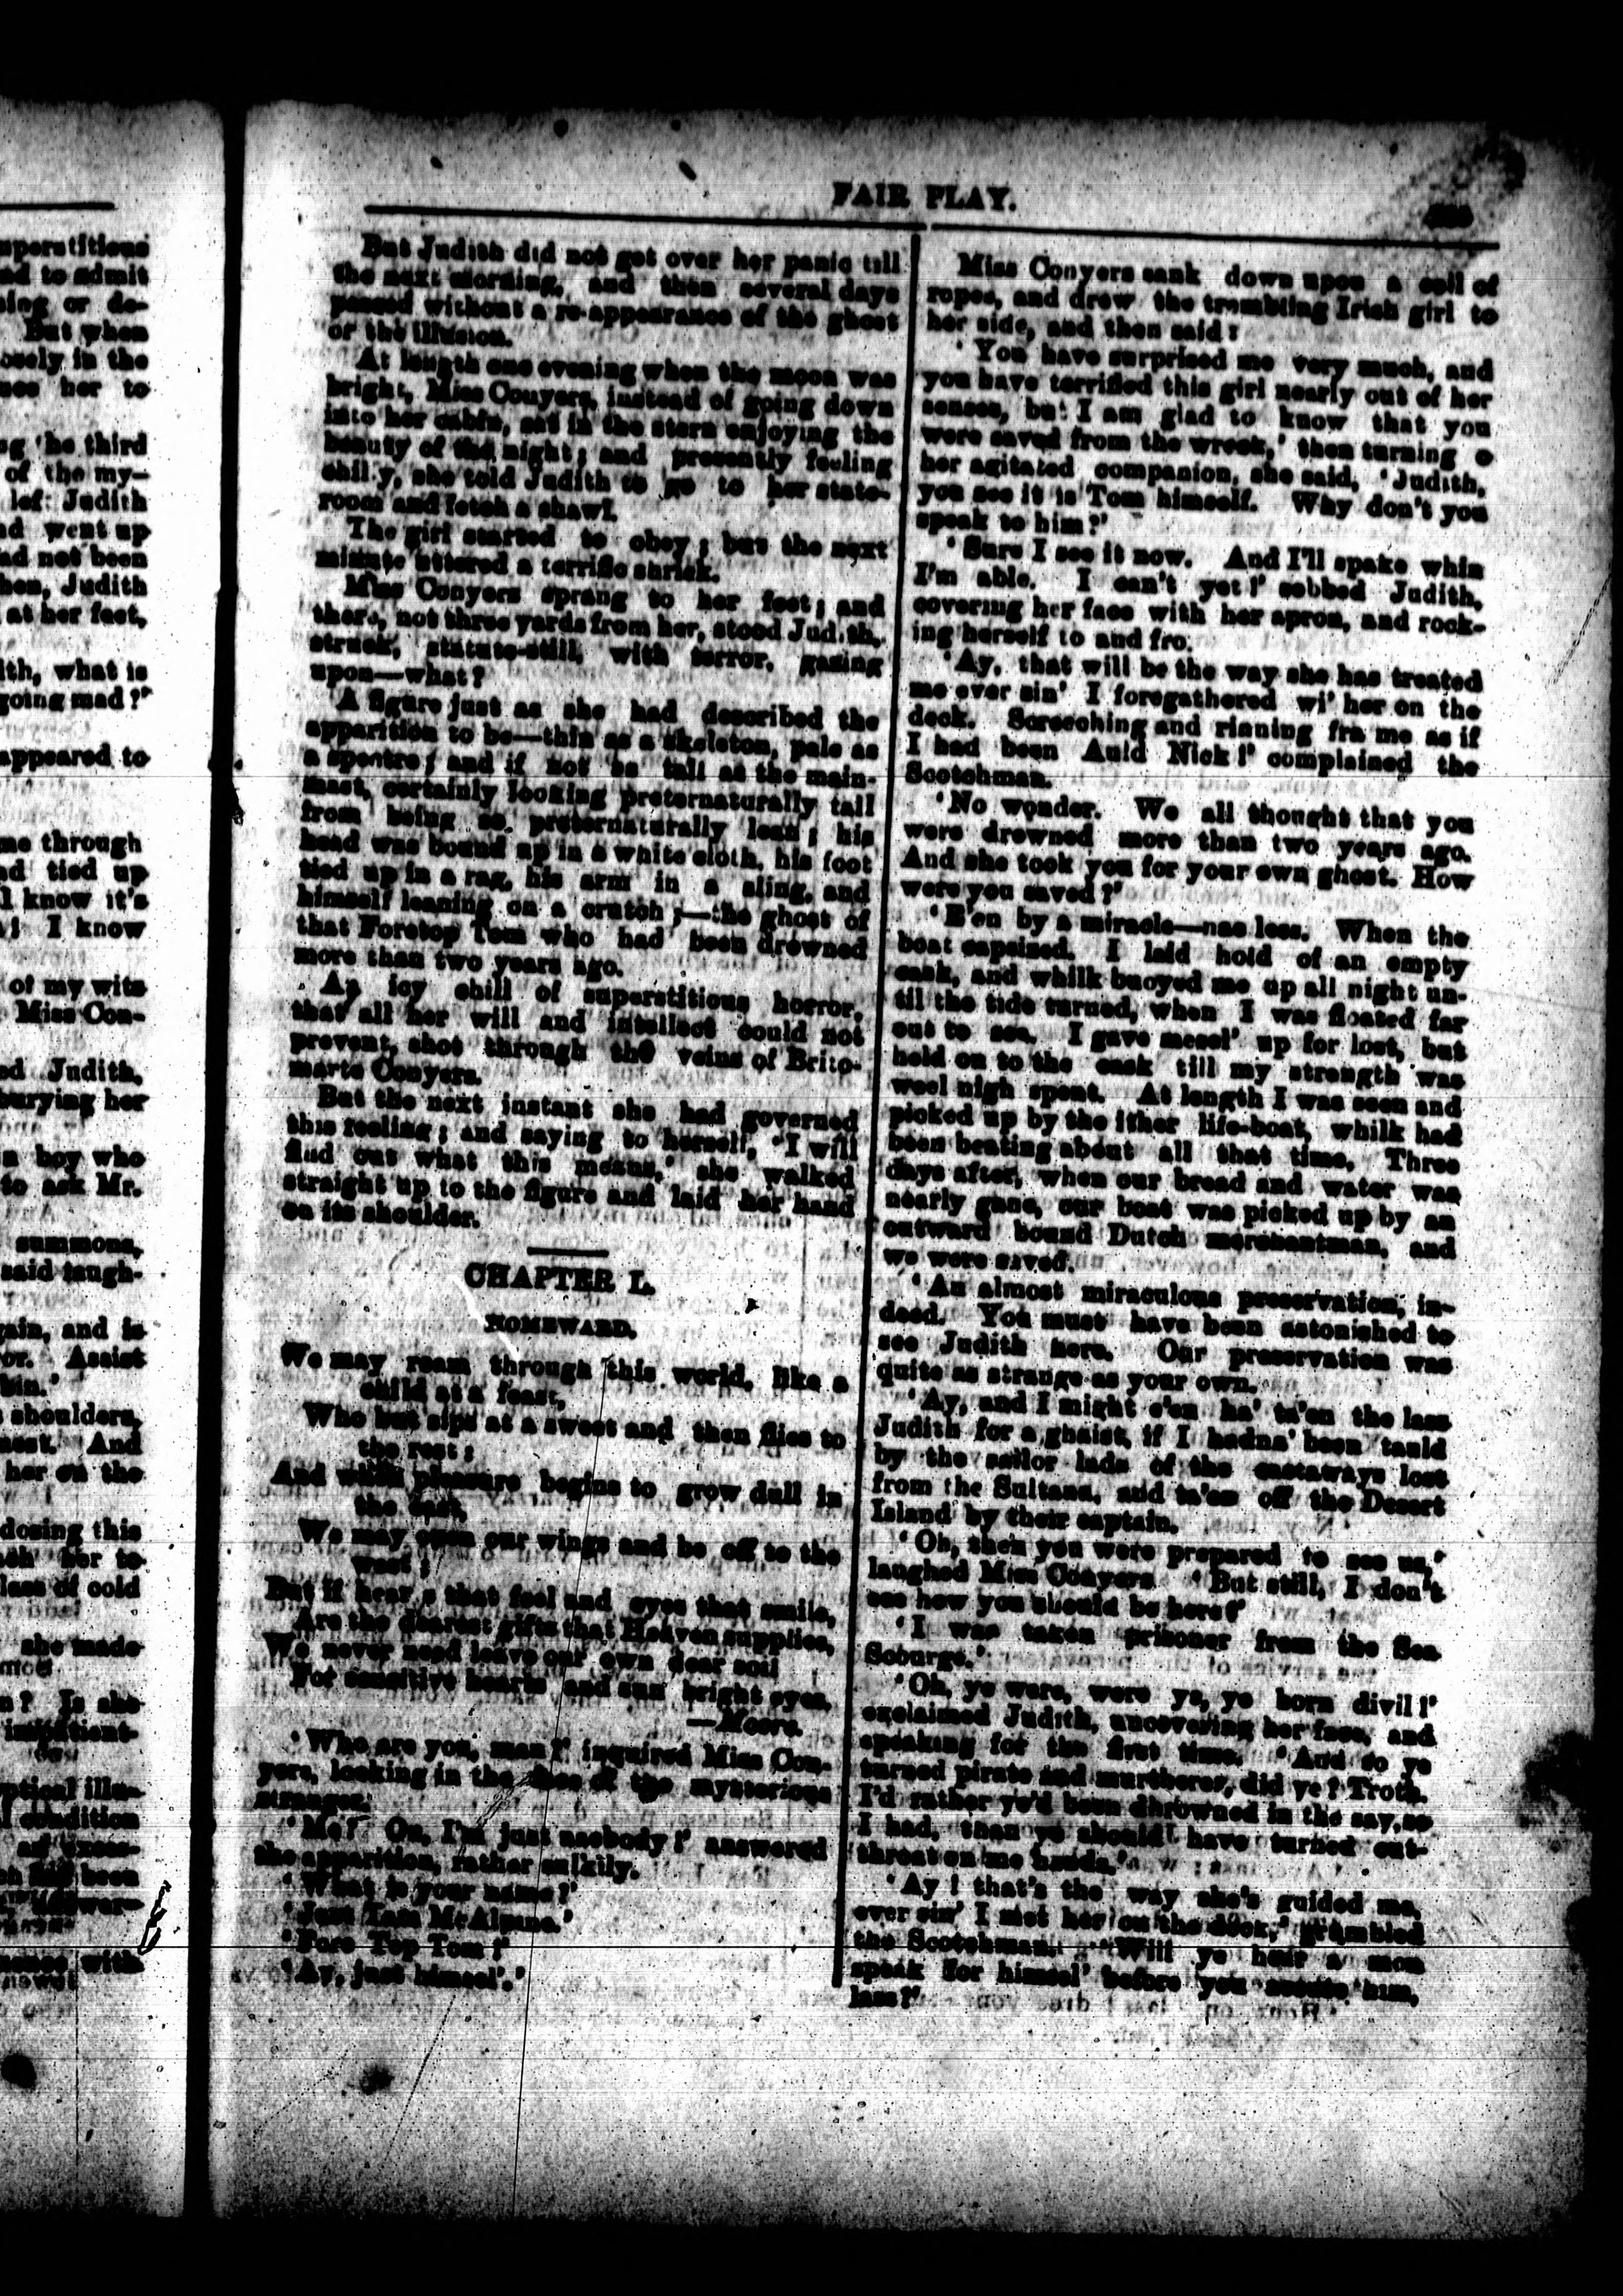 uperstitious
ed to admit
ning or de-
But when
ously in the
ues her to
ng 'he third
of the my-
lef: Judith
nd went up
ad not been
hen, Judith
at her feet,
ith, what is
going mad?"
appeared to
me through
nd tied up
I know it's
I know
of my wits
Miss Con-
ed Judith,
burying her
n boy who
to ask Mr.
summons,
said laugh-
ain, and is
or. Assist
bin.'
shoulders,
nest. And
her on the
dosing this
her to
lass of cold
she made
n? Is she
impatient-
ptical illu-
condition
been
with
FAIR PLAY.
But Judith did not get over her panic till
the next morning, and then several days
passed without a re-appearance of the ghost
or the illusion.
At length one evening when the moon was
bright, Miss Conyers, instead of going down
into her cabin, sat in the stern enjoying the
beauty of the night; and presently feeling
chilly, she told Judith to go to her state-
room and fetch a shawl.
The girl started to obey; but the next
minute uttered a terrific shriek.
Miss Conyers sprang to her feet; and
there, not three yards from her, stood Judith,
struck, statute-still, with terror, gazing
upon—what?
A figure just as she had described the
apparition to be—thin as a skeleton, pale as
a spectre; and if not as tall as the main-
mast, certainly looking preternaturally tall
from being so preternaturally lean; his
head was bound up in a white cloth, his foot
tied up in a rag, his arm in a sling, and
himself leaning on a crutch;—the ghost of
that Foretop Tom who had been drowned
more than two years ago.
An icy chill of superstitious horror,
that all her will and intellect could not
prevent, shot through the veins of Brito-
marte Conyers.
But the next instant she had governed
this feeling; and saying to herself, 'I will
find out what this means,' she walked
straight up to the figure and laid her hand
on its shoulder.
CHAPTER L.
HOMEWARD.
We may roam through this world, like a
child at a feast,
Who but sips at a sweet and then flies to
the rest:
And when pleasure begins to grow dull in
the east,
We may open our wings and be off to the
west;
But if hear s that feel and eyes that smile,
Are the dearest gifts that Heaven supplies,
We never need leave our own dear soil
For sensitive hearts and sun bright eyes.
—Moore.
'Who are you, man?' inquired Miss Con-
yers, looking in the face of the mysterious
stranger.
'Me? Ou, I'm just naebody!' answered
the apparition, rather sulkily.
'What is your name?'
'Just Tam McAlpine.'
'Fore Top Tom!'
'Ay, just himsel'.'
Miss Conyers sank down upon a coil of
ropes, and drew the trembling Irish girl to
her side, and then said:
'You have surprised me very much, and
you have terrified this girl nearly out of her
senses, but I am glad to know that you
were saved from the wreck,' then turning o
her agitated companion, she said, 'Judith,
you see it is Tom himself. Why don't you
speak to him?'
'Sure I see it now. And I'll spake whin
I'm able. I can't yet!' sobbed Judith,
covering her face with her apron, and rock-
ing herself to and fro.
'Ay, that will be the way she has treated
me ever sin' I foregathered wi' her on the
deck. Screeching and rinning fra me as if
I had been Auld Nick!' complained the
Scotchman.
'No wonder. We all thought that you
were drowned more than two years ago.
And she took you for your own ghost. How
were you saved?'
'E'en by a miracle—nae less. When the
boat capsized. I laid hold of an empty
cask, and whilk buoyed me up all night un-
til the tide turned, when I was floated far
out to sea. I gave mesel' up for lost, but
held on to the cask till my strength was
weel nigh spent. At length I was seen and
picked up by the ither life-boat, whilk had
been beating about all that time. Three
days after, when our bread and water was
nearly gane, our boat was picked up by an
outward bound Dutch merchantman, and
we were saved.
'An almost miraculous preservation, in-
deed. You must have been astonished to
see Judith here. Our preservation was
quite as strange as your own.
'Ay, and I might e'en ha' ta'en the lass
Judith for a ghaist, if I hadna' been tauld
by the sailor lads of the castaways lost
from the Sultana, and ta'en off the Desert
Island by their captain.
'Oh, then you were prepared to see us,'
laughed Miss Conyers. 'But still, I don't
see how you should be here?'
'I was taken prisoner from the Sea
Scourge.'
'Oh, ye were, were ye, ye born divil!'
exclaimed Judith, uncovering her face, and
speaking for the first time. 'And so ye
turned pirate and murtherer, did ye? Troth.
I'd rather ye'd been dhrowned in the say, so
I had, than ye should have turned cut-
throat on me hands.'
'Ay! that's the way she's guided me,
ever sin' I met her on the deck,' grumbled
the Scotchman. 'Will ye hear a mon
speak for himsel' before you accuse him,
lass?'